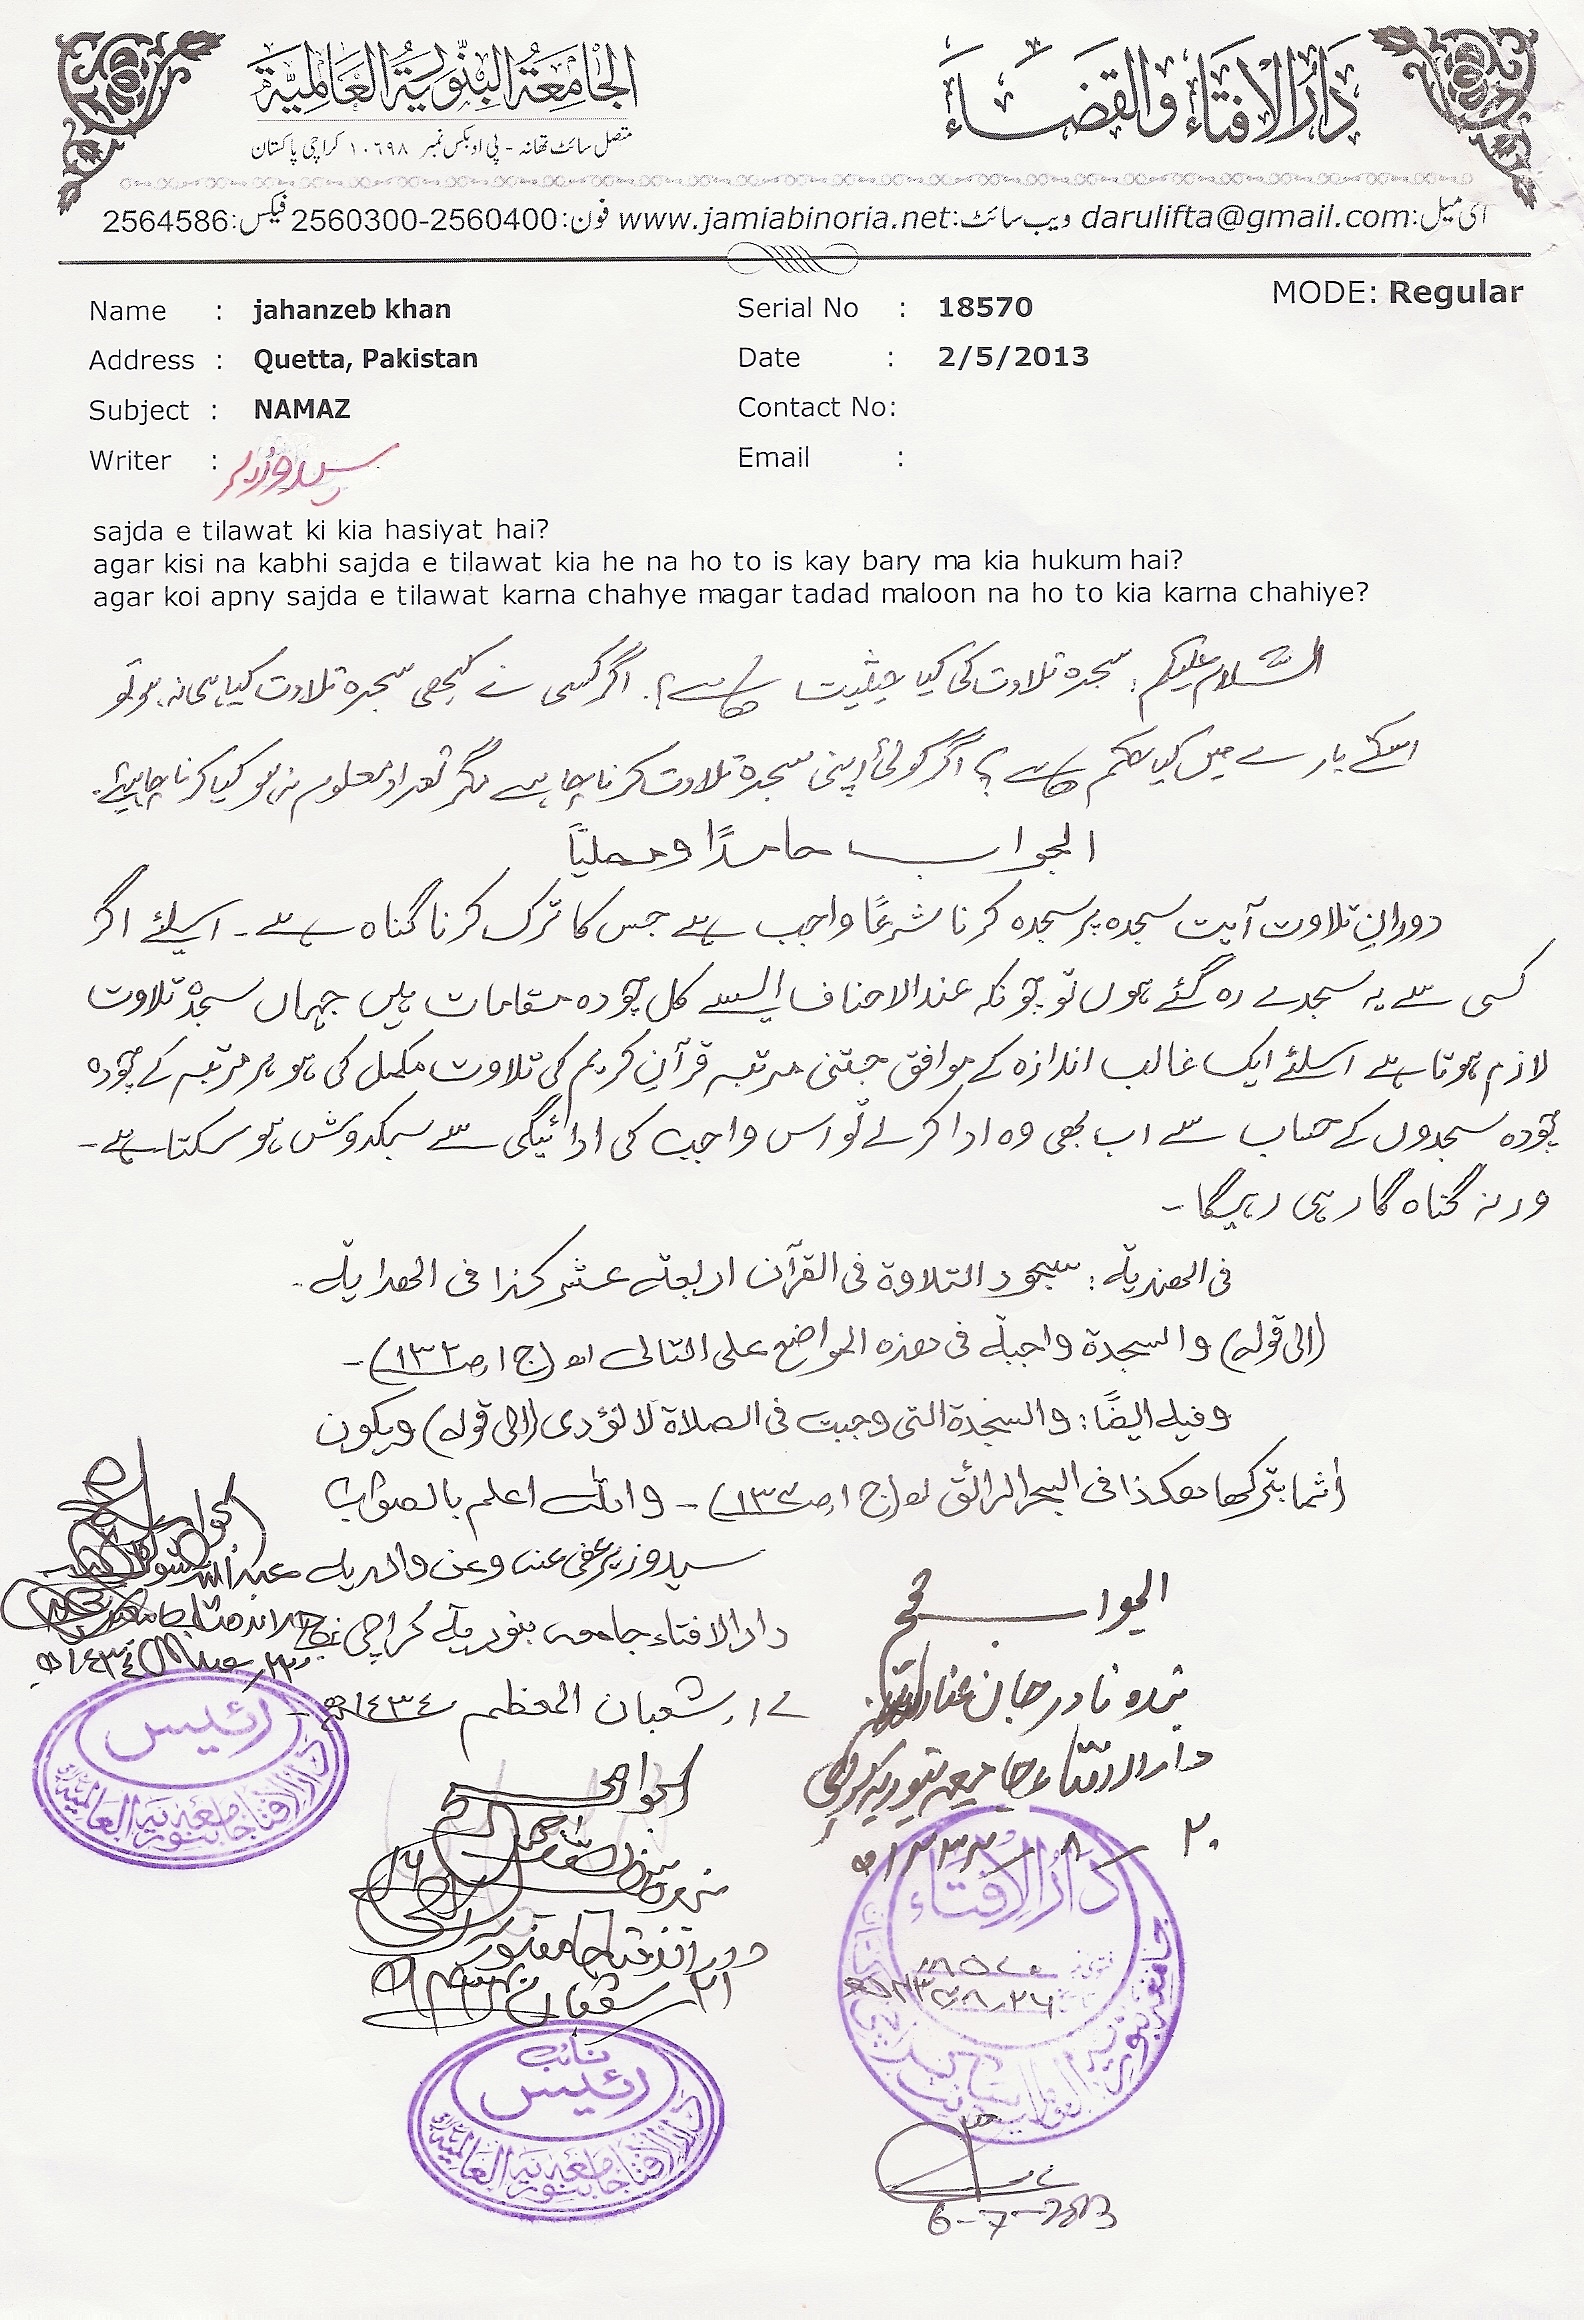 دَارُ الْاِفْتَاء وَالْقَضَاءَ
الْجَامِعَةُ الْبِنَّوْرِيَّةُ الْعَالَمِيَّة
متصل سائٹ تھانہ - پی او بکس نمبر ۱۰۶۹۸ کراچی پاکستان
ای میل:darulifta@gmail.com ویب سائٹ:www.jamiabinoria.net فون:2560300-2560400 فیکس:2564586
MODE: Regular
Name : jahanzeb khan Serial No : 18570
Address : Quetta, Pakistan Date : 2/5/2013
Subject : NAMAZ Contact No:
Writer : سید وزیر Email :
sajda e tilawat ki kia hasiyat hai?
agar kisi na kabhi sajda e tilawat kia he na ho to is kay bary ma kia hukum hai?
agar koi apny sajda e tilawat karna chahye magar tadad maloon na ho to kia karna chahiye?
السّلام علیکم: سجدہ تلاوت کی کیا حیثیت ہے؟. اگر کسی نے کبھی سجدہ تلاوت کیا ہی نہ ہو تو
اسکے بارے میں کیا حکم ہے؟ اگر کوئی اپنی سجدہ تلاوت کرنا چاہے مگر تعداد معلوم نہ ہو کیا کرنا چاہیئے.
الجواب حامدًا ومصلیًا
دورانِ تلاوت آیت سجدہ پر سجدہ کرنا شرعًا واجب ہے جس کا ترک کرنا گناہ ہے۔ اسلئے اگر
کسی سے یہ سجدے رہ گئے ہوں تو چونکہ عند الاحناف ایسے کل چودہ مقامات ہیں جہاں سجدۂ تلاوت
لازم ہوتا ہے اسلئے ایک غالب اندازہ کے موافق جتنی مرتبہ قرآنِ کریم کی تلاوت مکمل کی ہو ہر مرتبہ کے چودہ
چودہ سجدوں کے حساب سے اب بھی وہ ادا کرلے تو اس واجب کی ادائیگی سے سبکدوش ہو سکتا ہے۔
ورنہ گناہ گار ہی رہیگا۔
فی الھندیۃ: سجود التلاوۃ فی القرآن اربعۃ عشر کذا فی الھدایۃ۔
(الی قولہ) والسجدۃ واجبۃ فی ھذہ المواضع علی التالی اھ (ج۱ صـ۱۳۲)۔
وفیہ ایضًا: والسجدۃ التی وجبت فی الصلاۃ لا تؤدی (الی قولہ) ویکون
اٰثما بترکھا ھکذا فی البحر الرائق اھ (ج۱ صـ۱۳۴)۔ واللہ اعلم بالصواب
سید وزیر عفی عنہ وعن والدیہ
دارالافتاء جامعہ بنوریہ کراچی
۱۷ شعبان المعظم ۱۴۳۴ھ
الجواب صحیح
بندہ نادر جان عفا اللہ عنہ
دارالافتاء جامعہ بنوریہ کراچی
۲۰ – ۸ – ۱۴۳۴ھ
الجواب صحیح
رئیس
دارالافتا جامعہ بنوریہ العالمیہ
الجواب صحیح
دارالافتاء جامعہ بنوریہ
۲۱ شعبان
نائب
رئیس
دارالافتا جامعہ بنوریہ العالمیہ
دَارُ الْاِفْتَاء
فتویٰ نمبر ۱۸۵۷۰
6-7-2013